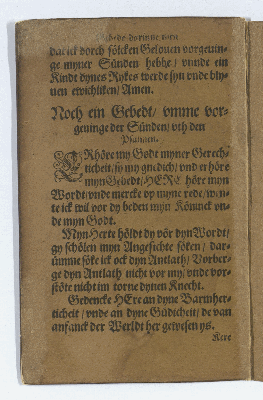 dat ick dorch sölcken Gelouen vorgeuin-
ge myner Sünden hebbe/ vnnde ein
Kindt dynes Rykes werde syn vnde bly-
uen ewichliken/ Amen.
Noch ein Gebedt/ vmme vor-
geuinge der Sünden/ vth den
Psalmen.
ERhöre my Godt myner Gerech-
ticheit/ sy my gnedich/ vnd erhöre
myn Gebedt/ HERE höre myn
Wordt/ vnde mercke vp myne rede/ wen-
te ick wil vor dy beden myn Köninck vn-
de myn Godt.
Myn Herte höldt dy vör dyn Wordt/
gy schölen myn Angesichte söken/ dar-
ümme söke ick ock dyn Antlath/ Vorber-
ge dyn Antlath nicht vor my/ vnde vor-
stöte nicht im torne dynen Knecht.
Gedencke HEre an dyne Barmher-
ticheit/ vnde an dyne Güdicheit/ de van
anfanck der Werldt her gewesen ys.
Kere